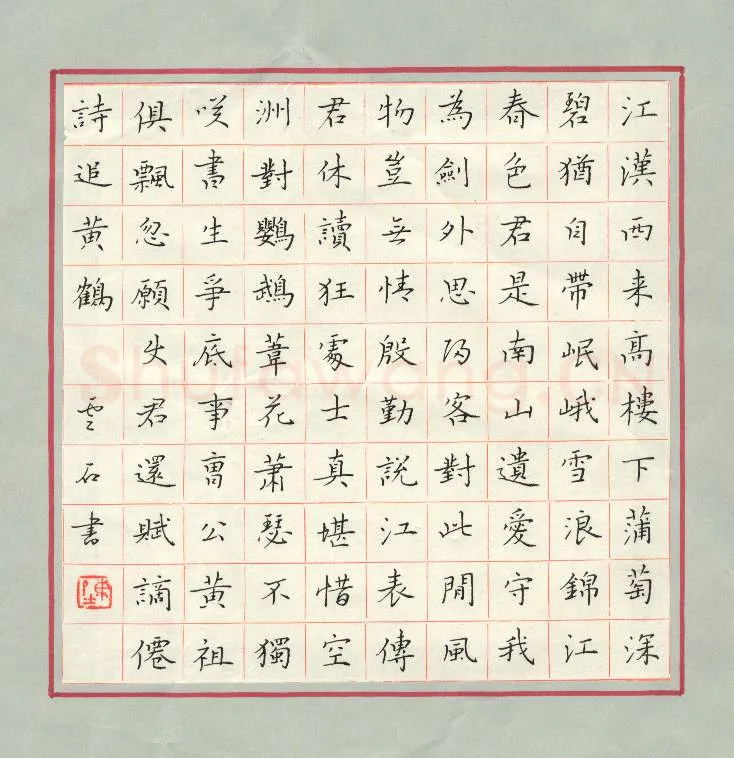 江漢西来高樓下蒲萄深
碧猶自帶岷峨雪浪錦江
春色君是南山遺愛守我
為劍外思歸客對此閒風
物豈無情殷勤說江表傳
君休讀狂處士真堪惜空
洲對鸚鵡葦花蕭瑟不獨
咲書生爭底事曹公黃祖
俱飄忽願使君還賦謫僊
詩追黃鶴 雲石書
Shufawang.CN